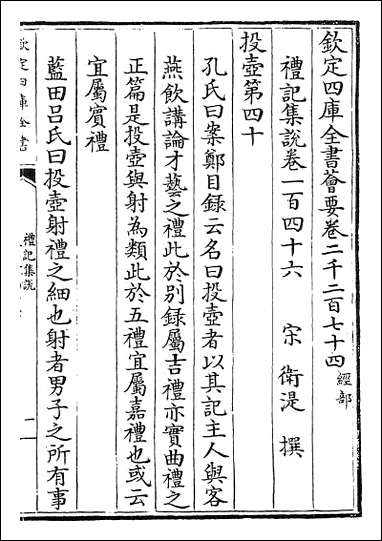 欽定四庫全書薈要卷二千二百七十四 經部
禮記集說卷一百四十六 宋 衛湜 撰
投壺第四十
孔氏曰案鄭目録云名曰投壺者以其記主人與客
燕飲講論才藝之禮此於别録屬吉禮亦實曲禮之
正篇是投壺與射為類此於五禮宜屬嘉禮也或云
宜屬賓禮
藍田吕氏曰投壺射禮之細也射者男子之所有事
欽定四庫全書
禮記集說